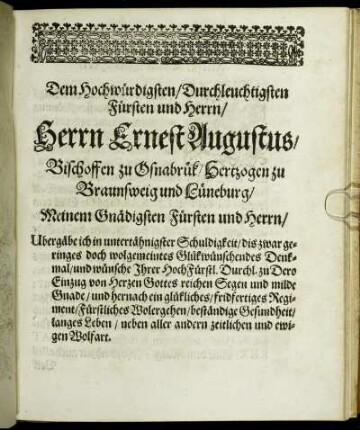 Dem Hochwürdigsten/ Durchleuchtigsten
Fürsten und Herrn/
Herrn Ernest Augustus/
Bischoffen zu Osnabrük/ Hertzogen zu
Braunsweig und Lüneburg/
Meinem Gnädigsten Fürsten und Herrn/
Ubergäbe ich in untertähnigster Schuldigkeit/ dis zwar ge-
ringes doch wolgemeintes Glükwünschendes Denk-
mal/ und wünsche Ihrer HochFürstl. Durchl. zu Dero
Einzug von Herzen Gottes reichen Segen und milde
Gnade/ und hernach ein glükliches/ fridfertiges Regi-
ment/ Fürstliches Wolergehen/ beständige Gesundheit/
langes Leben/ neben aller andern zeitlichen und ewi-
gen Wolfart.